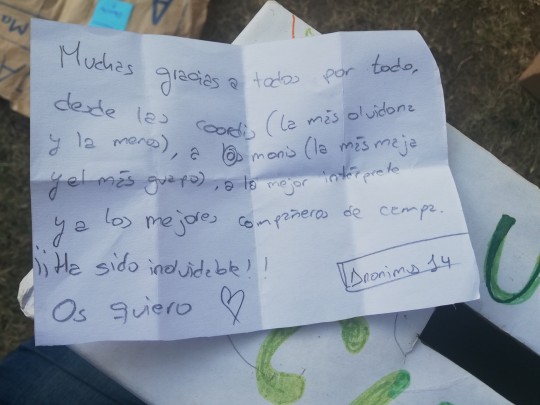 Muchas gracias a todos por todo,
desde las coordis (la más olvidona
y la menos), a los monis (la más maja
y el más guapo), a la mejor intérprete
y a los mejores compañeros de campa.
¡¡Ha sido inolvidable!!
Anonimus 14
Os quiero